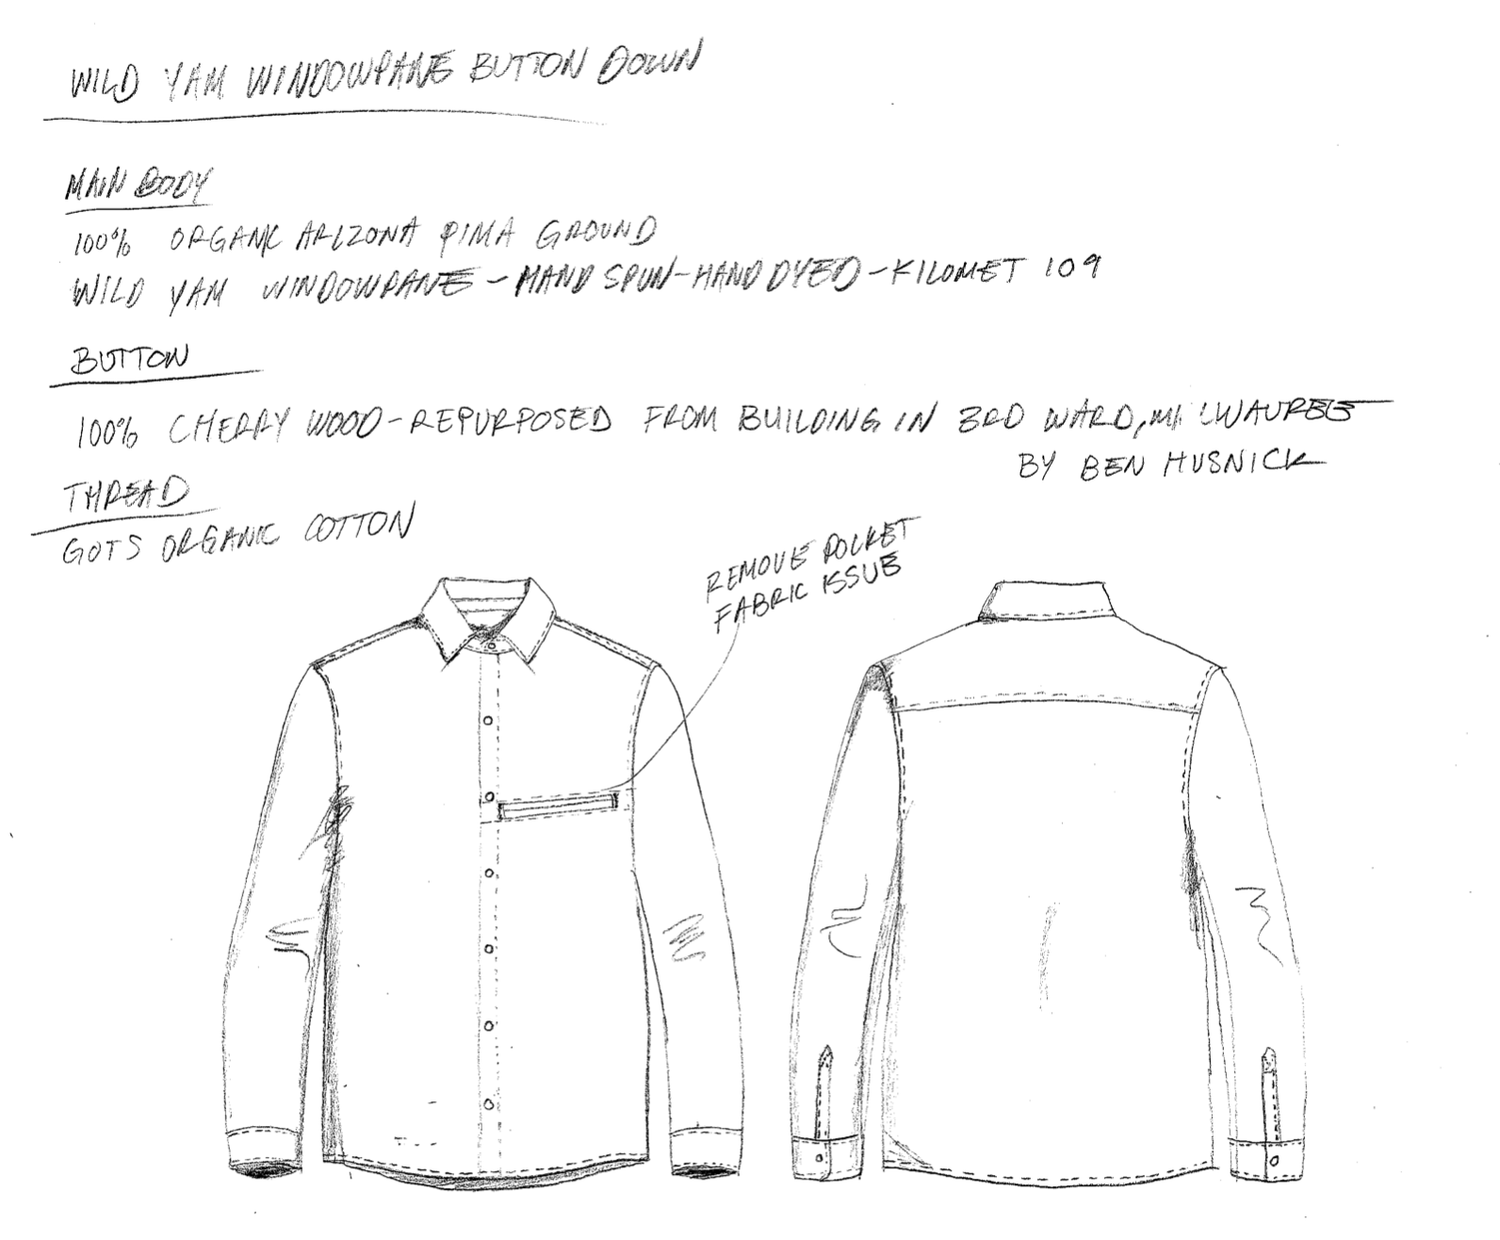 WILD YAM WINDOWPANE BUTTON DOWN
MAIN BODY
100% ORGANIC ARIZONA PIMA GROUND
WILD YAM WINDOWPANE - HAND SPUN - HAND DYED - KILOMET 109
BUTTON
100% CHERRY WOOD - REPURPOSED FROM BUILDING IN 3RD WARD, MILWAUKEE
BY BEN HUSNICK
THREAD
GOTS ORGANIC COTTON
REMOVE POCKET
FABRIC ISSUE